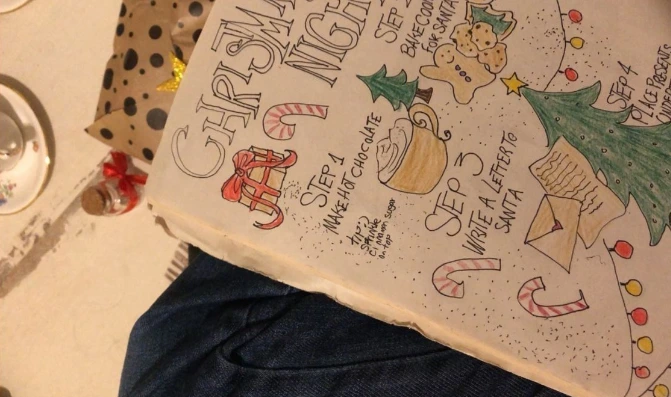 CHRISTMA
NIGH
STEP 1
MAKE HOT CHOCOLATE
tip:)
on top
STEP 2
BAKE COOK
FOR SANTA
STEP 3
WRITE A LETTER TO
SANTA
STEP 4
PLACE PRESENT